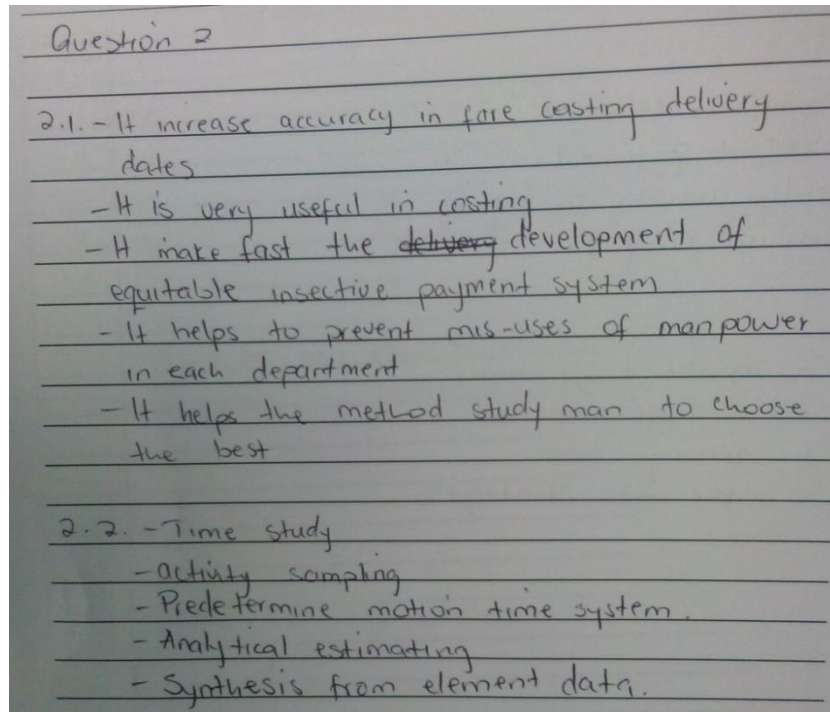 Question 2
2.1. - It increase accuracy in fore casting delivery
dates
- It is very useful in costing
- It make fast the delivery development of
equitable insective payment system
- It helps to prevent mis-uses of manpower
in each department
- It helps the method study man to choose
the best
2.2. - Time study
- activity sampling
- Predetermine motion time system.
- Analytical estimating
- Synthesis from element data.